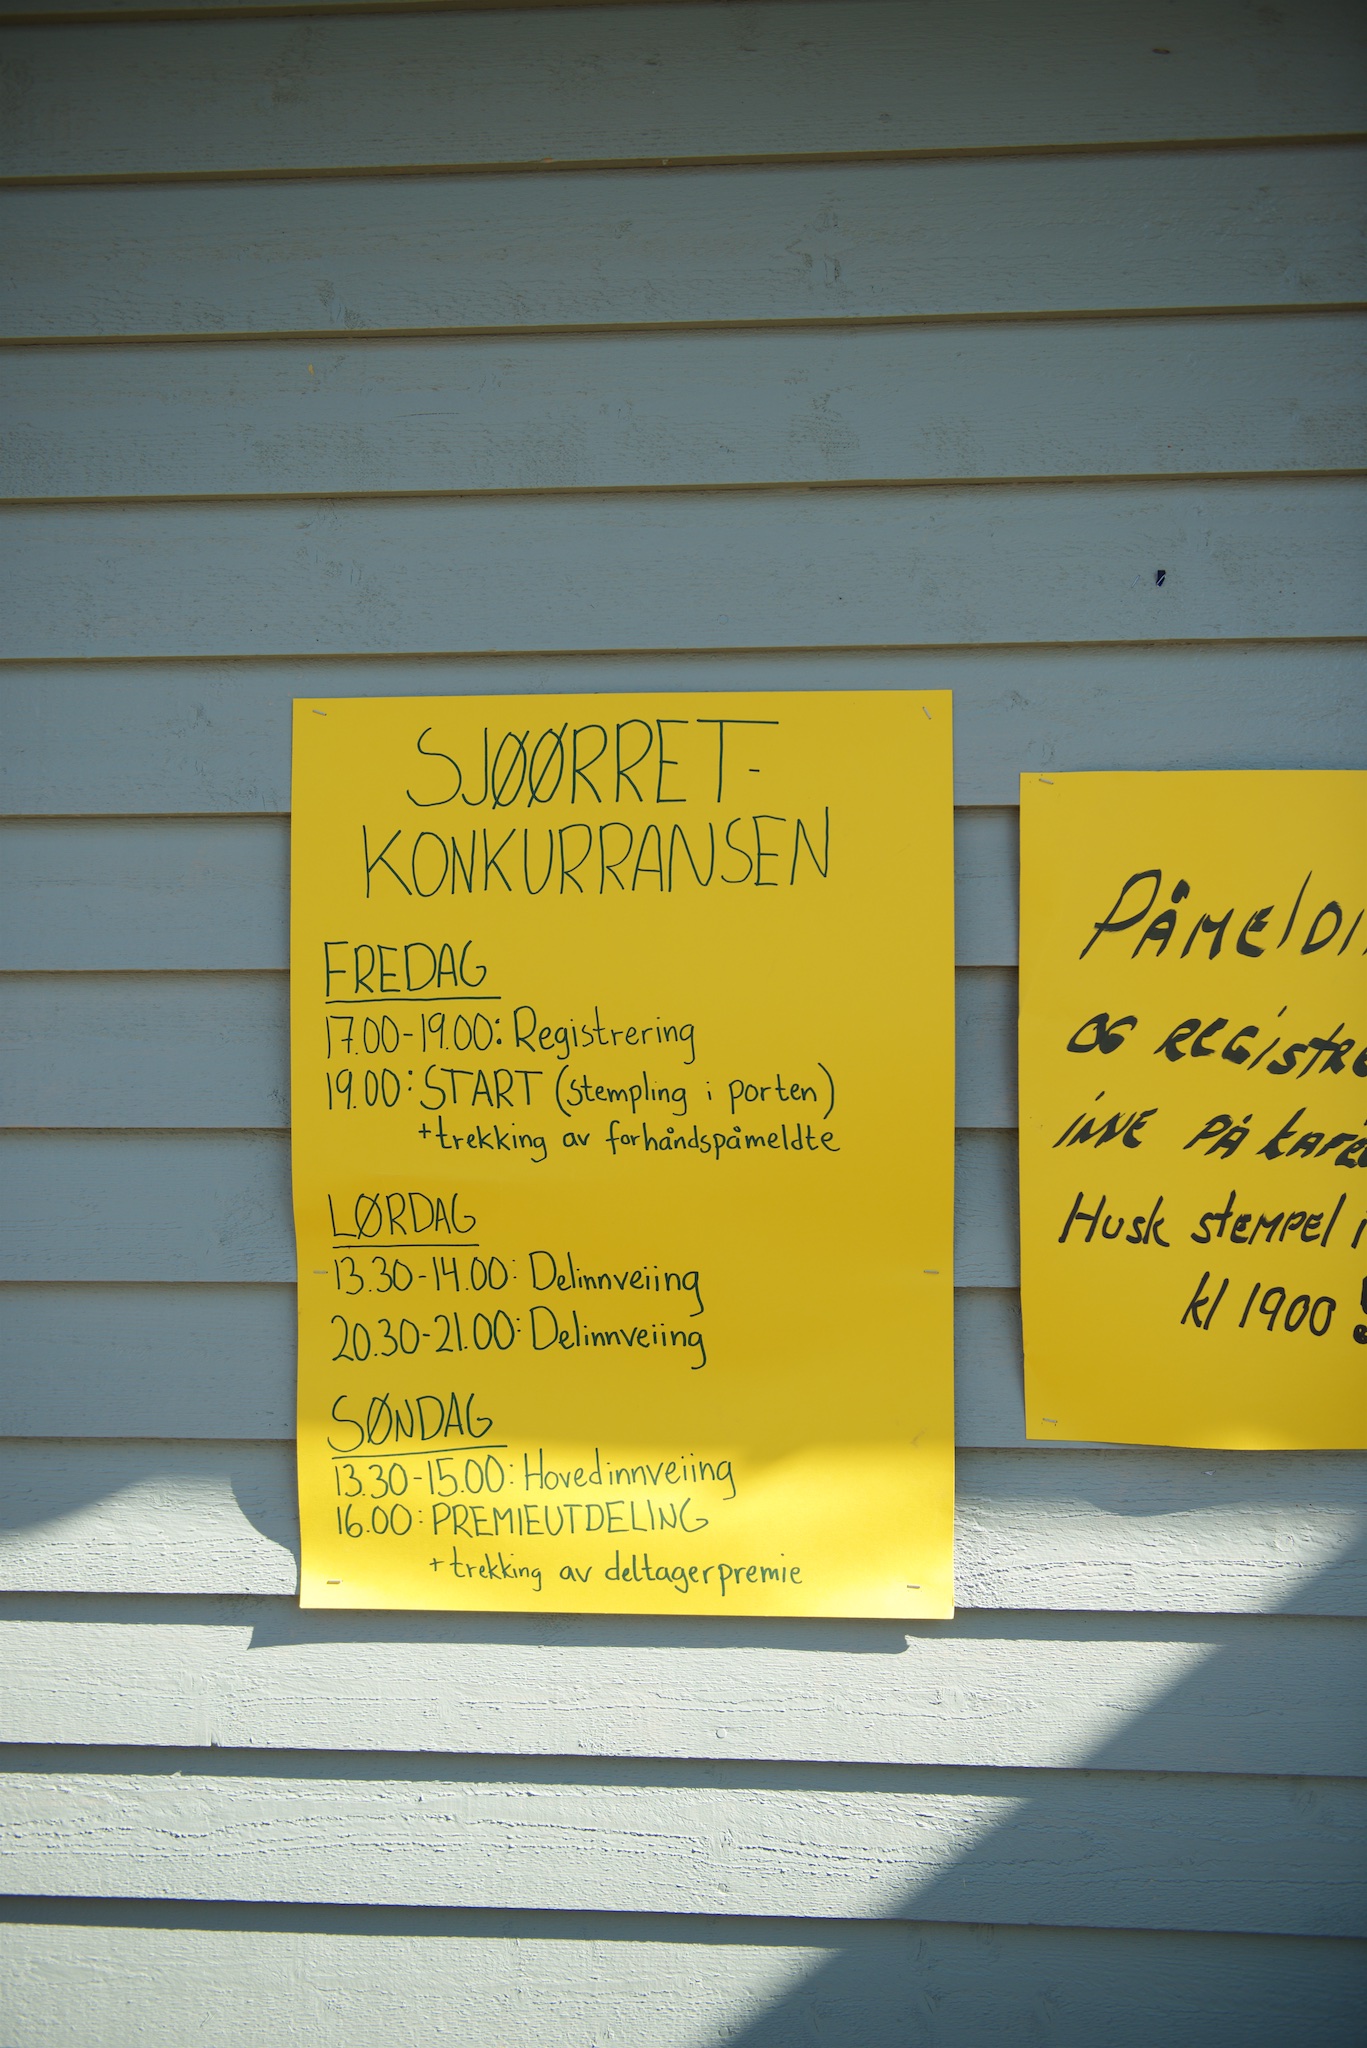 SJØØRRET-
KONKURRANSEN
FREDAG
17.00-19.00: Registrering
19.00: START (stempling i porten)
+trekking av forhåndspåmeldte
LØRDAG
13.30-14.00: Delinnveiing
20.30-21.00: Delinnveiing
SØNDAG
13.30-15.00: Hovedinnveiing
16.00: PREMIEUTDELING
+trekking av deltagerpremie
OG
iNNE PÅ
Husk stempel i
kl 1900!